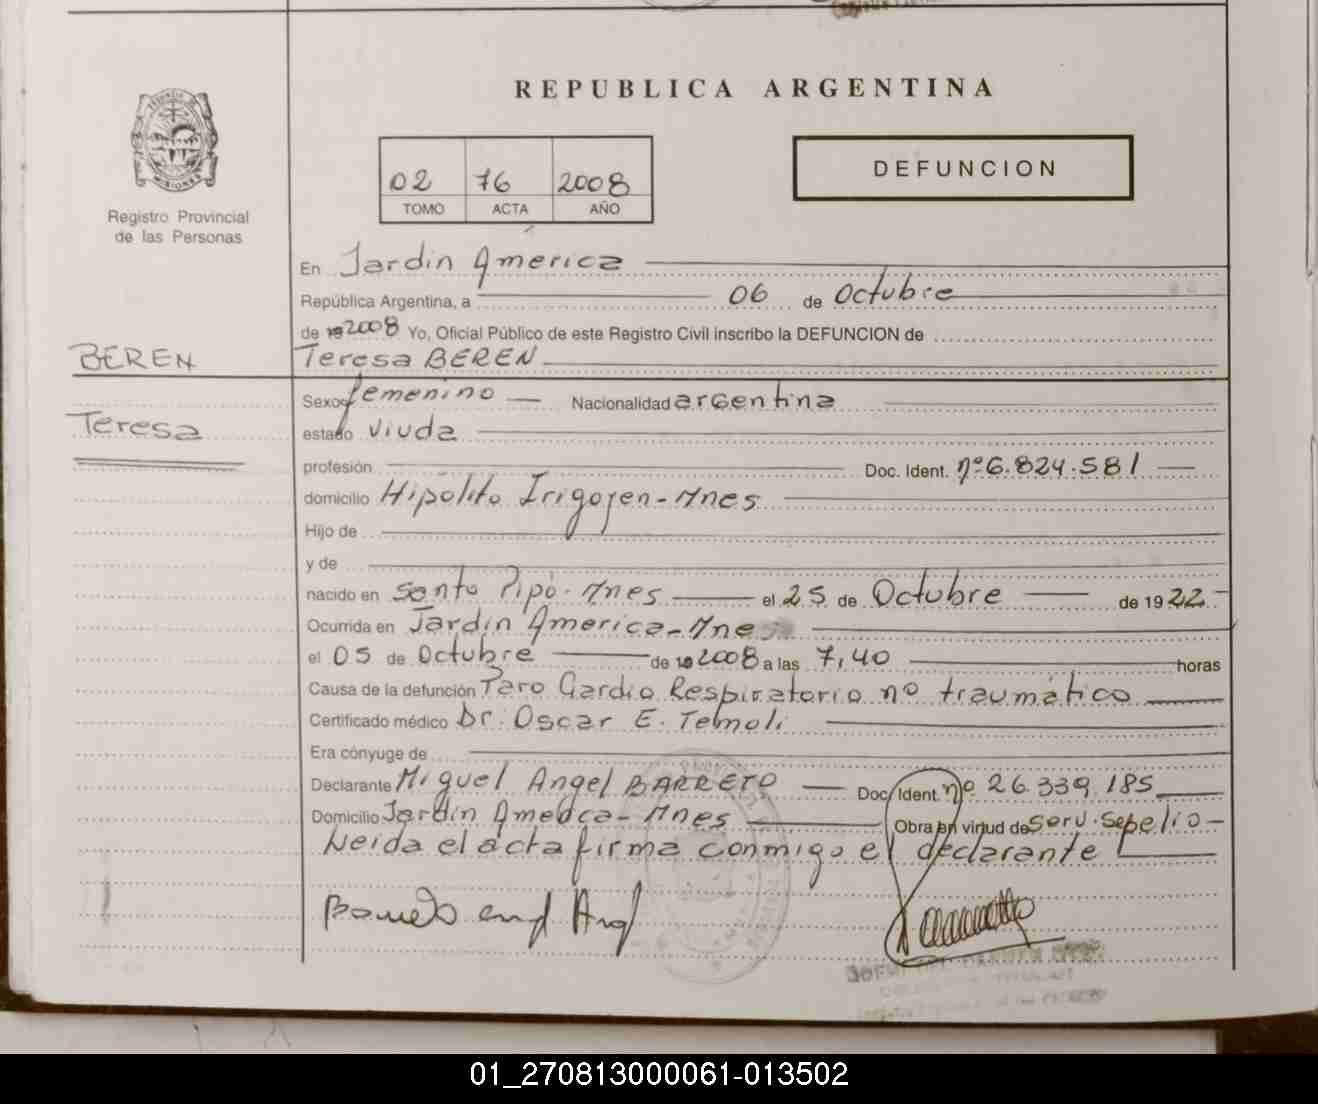 REPUBLICA ARGENTINA
MISIONES
Registro Provincial
de las Personas
02 76 2008
TOMO ACTA AÑO
DEFUNCION
En Jardin América
República Argentina, a 06 de Octubre
de 19 2008 Yo, Oficial Público de este Registro Civil inscribo la DEFUNCION de
BEREN
Teresa BEREN
Teresa
Sexo femenino Nacionalidad argentina
estado viuda
profesión Doc. Ident. nº 6.824.581
domicilio Hipólito Irigoyen - Mnes
Hijo de
y de
nacido en Santo Pipó - Mnes el 25 de Octubre de 1922
Ocurrida en Jardin America - Mnes
el 05 de Octubre de 19 2008 a las 7,40 horas
Causa de la defunción Paro Cardio Respiratorio no traumático
Certificado médico Dr. Oscar E. Temoli
Era cónyuge de
Declarante Miguel Angel BARRETO Doc. Ident. nº 26.339.185
Domicilio Jardin America - Mnes Obra en virtud de Serv. Sepelio -
Leida el acta firma conmigo el declarante
01_270813000061-013502